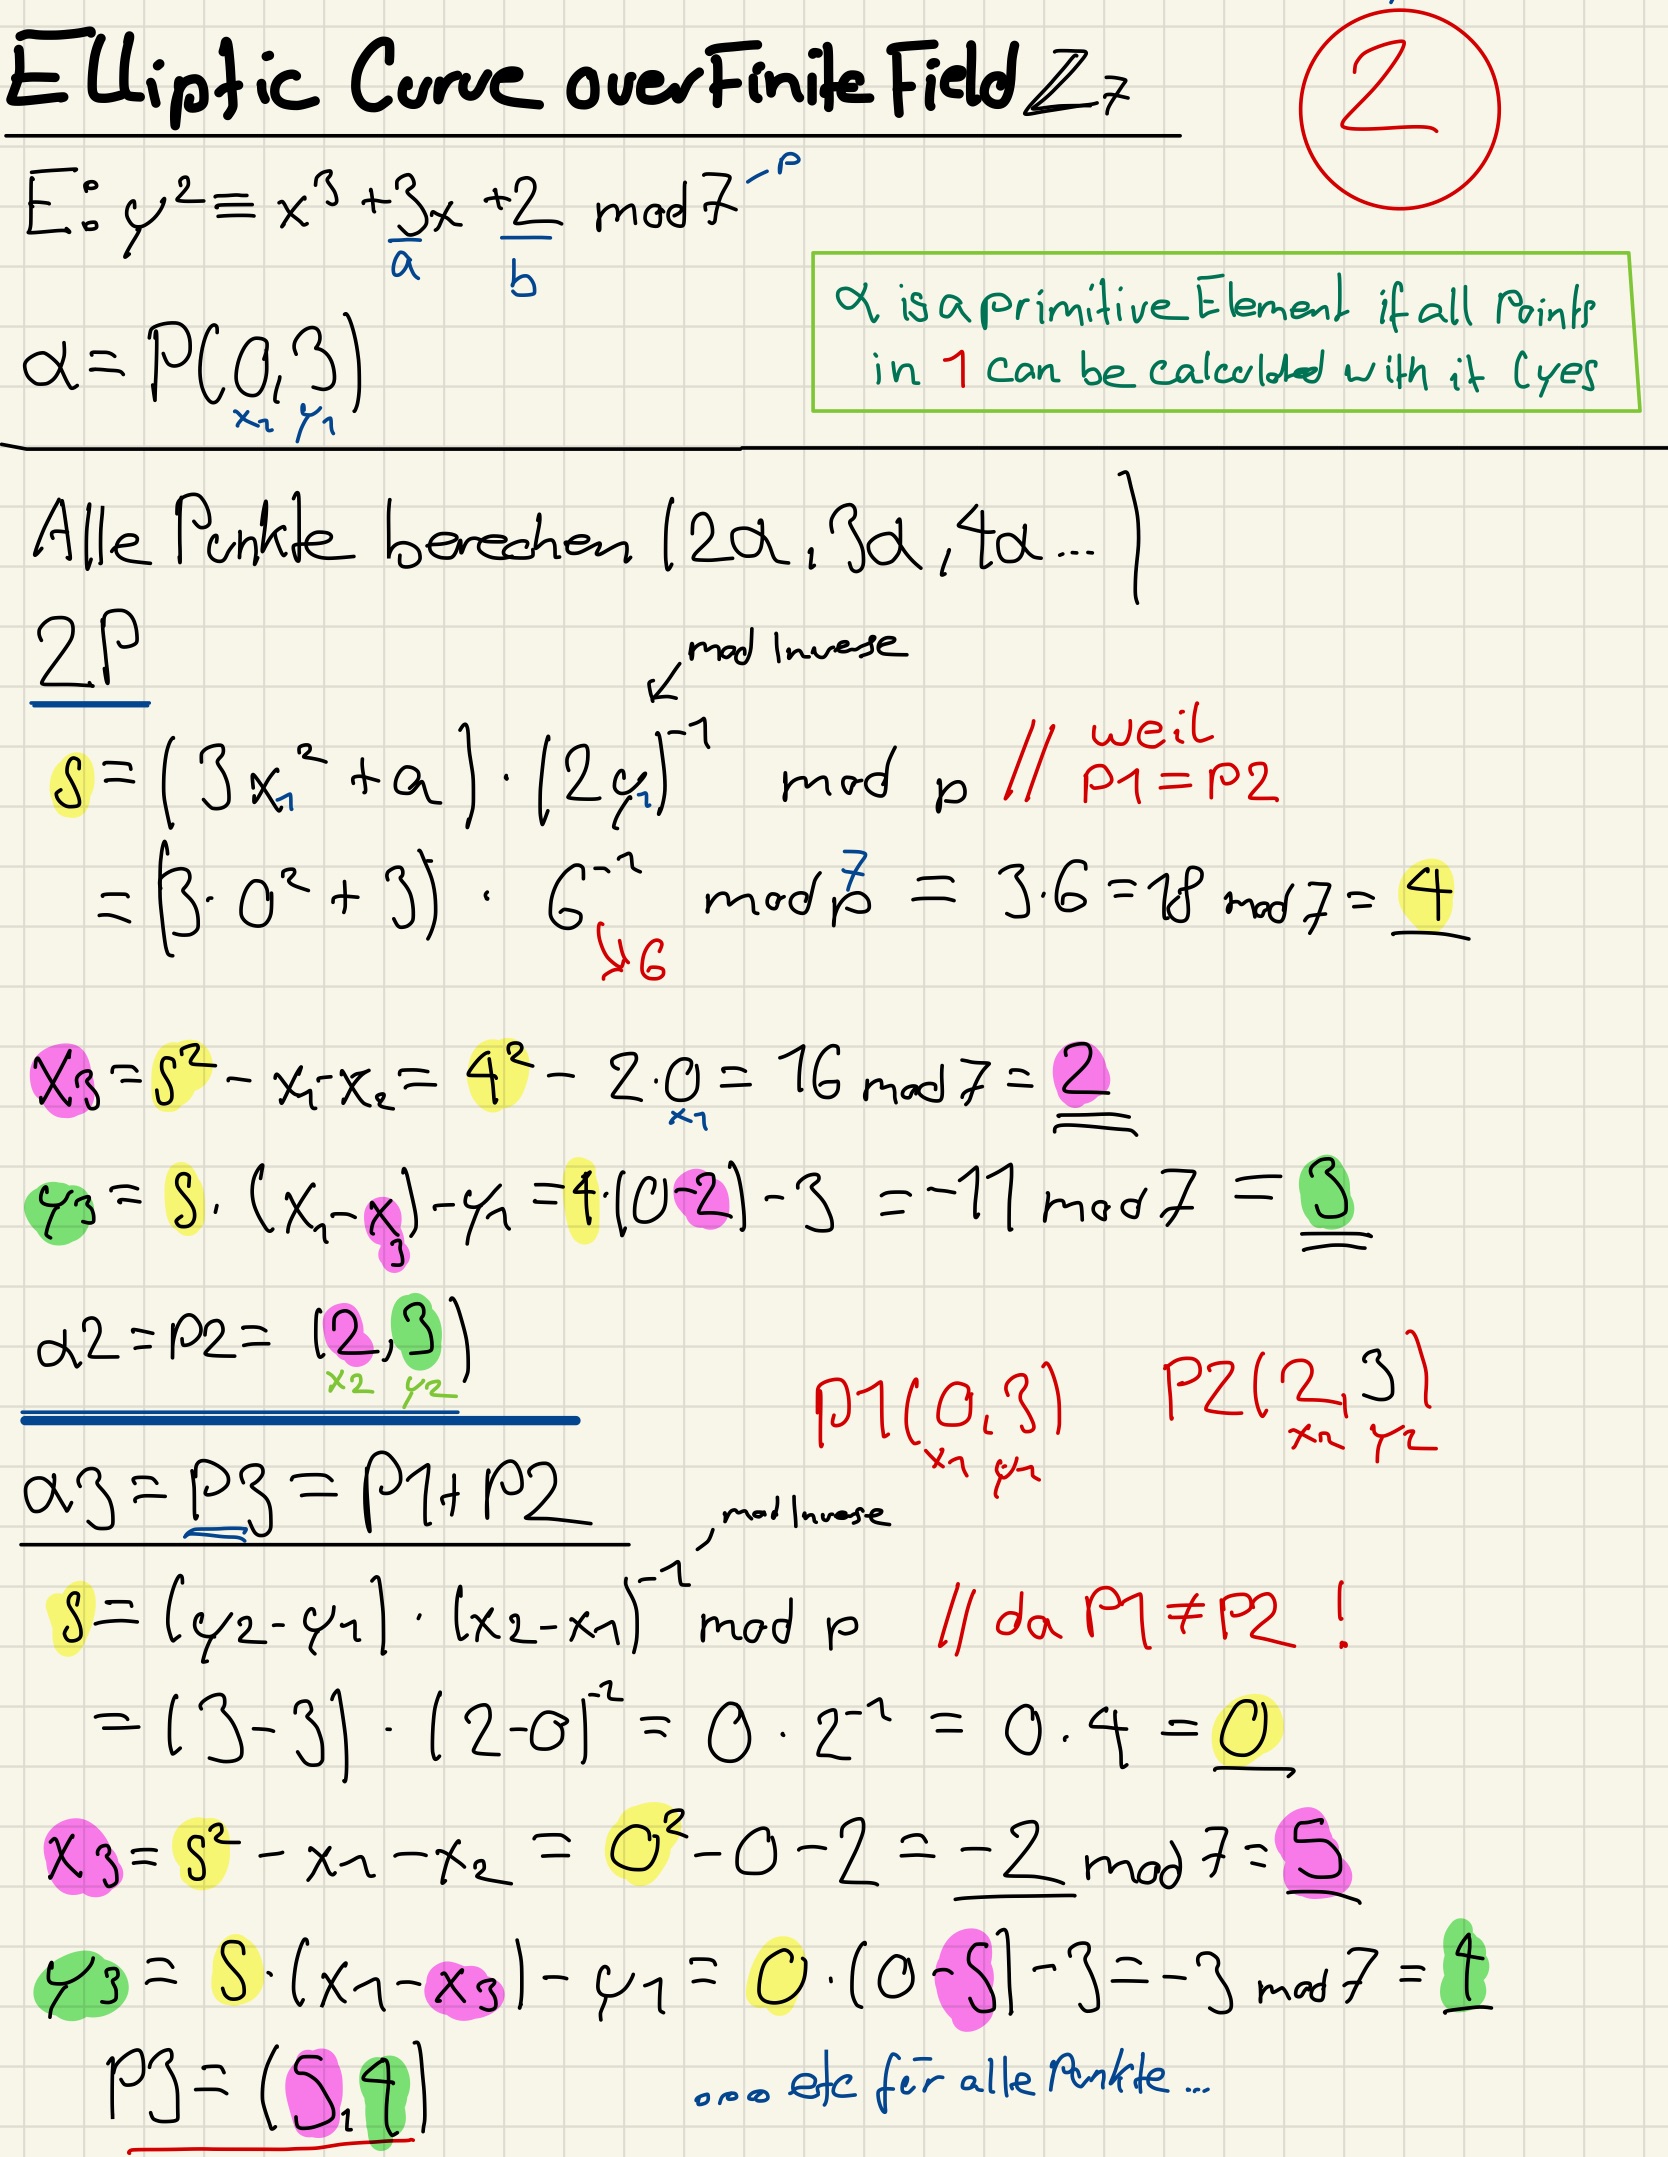 Elliptic Curve over Finite Field ℤ₇
2
E: y² ≡ x³ + 3x + 2 mod 7 - p
a b
α is a primitive Element if all Points
in 1 can be calculated with it (yes
α = P(0,3)
x₁ y₁
Alle Punkte berechen (2α, 3α, 4α ...)
2P
mod Inverse
s = (3x₁² + a) · (2y₁)⁻¹ mod p // weil P1 = P2
= (3·0² + 3) · 6⁻¹ mod p = 3·6 = 18 mod 7 = 4
7
↘ 6
x₃ = s² - x₁ - x₂ = 4² - 2·0 = 16 mod 7 = 2
x₁
y₃ = s · (x₁ - x₃) - y₁ = 4·(0-2) - 3 = -11 mod 7 = 3
α2 = P2 = (2,3)
x₂ y₂
P1(0,3) P2(2,3)
x₁ y₁ x₂ y₂
α3 = P3 = P1 + P2
mod Inverse
s = (y₂ - y₁) · (x₂ - x₁)⁻¹ mod p // da P1 ≠ P2 !
= (3-3) · (2-0)⁻¹ = 0 · 2⁻¹ = 0 · 4 = 0
x₃ = s² - x₁ - x₂ = 0² - 0 - 2 = -2 mod 7 = 5
y₃ = s · (x₁ - x₃) - y₁ = 0 · (0-5) - 3 = -3 mod 7 = 4
P3 = (5,4)
.... etc für alle Punkte ...